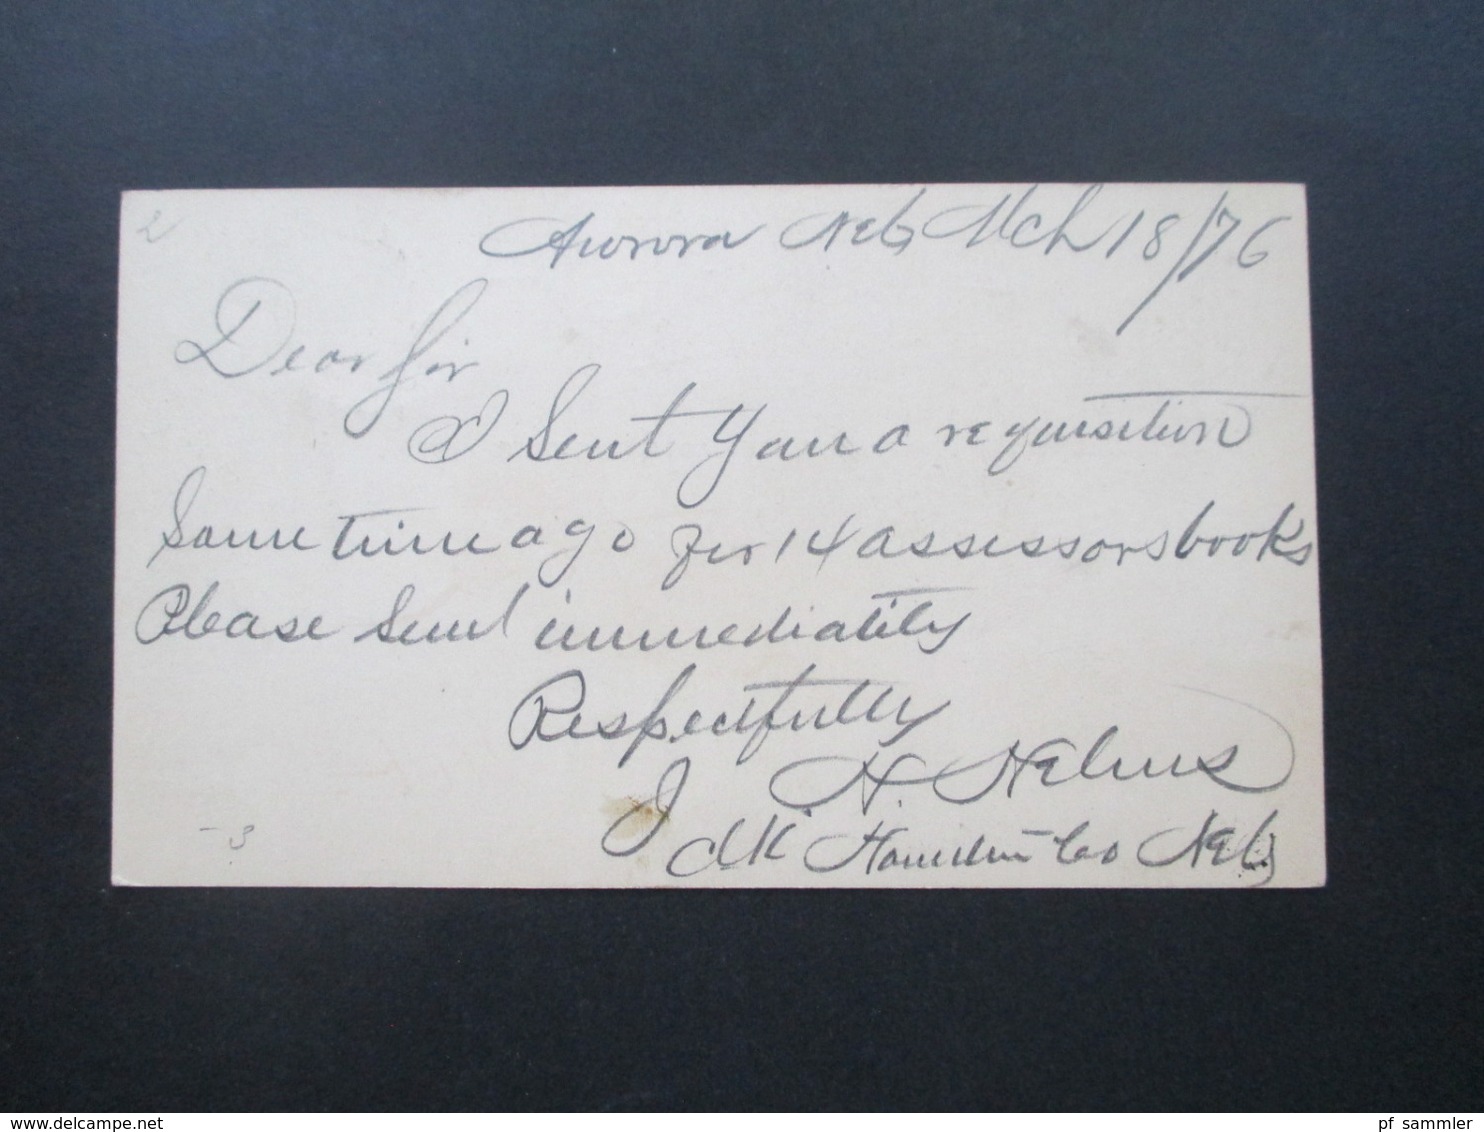 2
Aurora Neb Mch 18/76
Dear Sir
I Sent You a requisition
Some time ago for 14 assessors books
Please Send immediatily
Respectfully
J. H. Helms
Clk Hamilton Co Neb
- 3
www.delcampe.net
pf_sammler